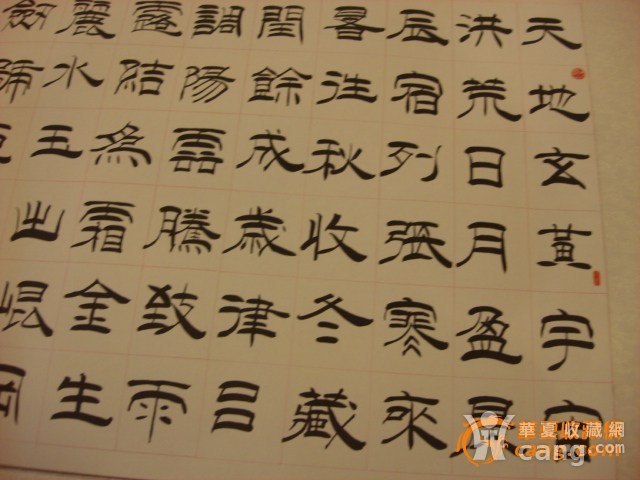 天地玄黃宇宙
洪荒日月盈昃
辰宿列張寒來
暑往秋收冬藏
閏餘成歲律呂
調陽雲騰致雨
露結為霜金生
麗水玉出崐岡
劍號巨
華夏收藏網
cang.com